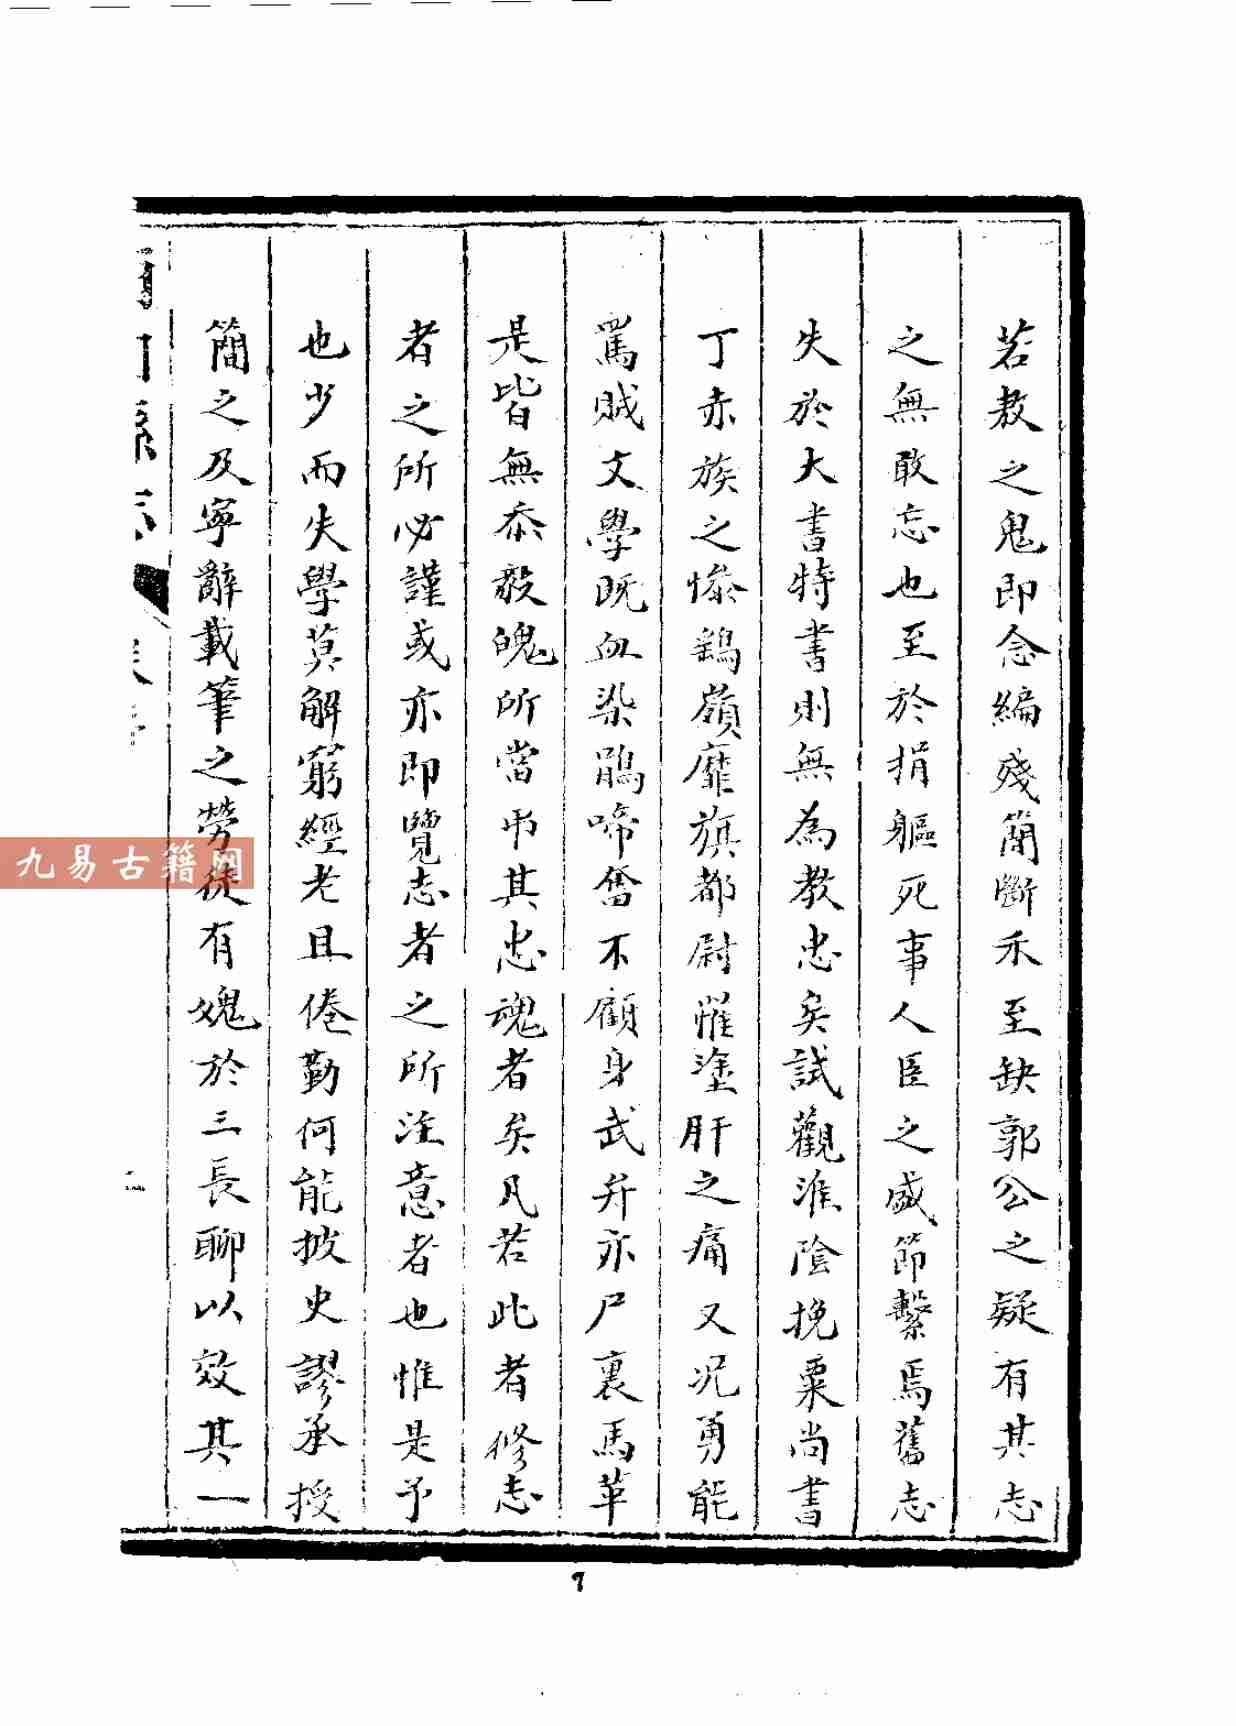 若敖之鬼即念編殘簡斷禾至缺郭公之疑有其志
之無敢忘也至於捐軀死事人臣之盛節繫焉舊志
失於大書特書則無為教忠矣試觀淮陰挽粟尚書
丁赤族之慘鷄嶺靡旗都尉罹塗肝之痛又况勇能
罵賊文學既血染鵑啼奮不顧身武弁亦尸裹馬革
是皆無忝毅魄所當弔其忠魂者矣凡若此者修志
者之所必謹或亦即覽志者之所注意者也惟是予
也少而失學莫解窮經老且倦勤何能披史謬承授
簡之及寧辭載筆之勞徒有媿於三長聊以效其一
縣志
九易古籍网
7